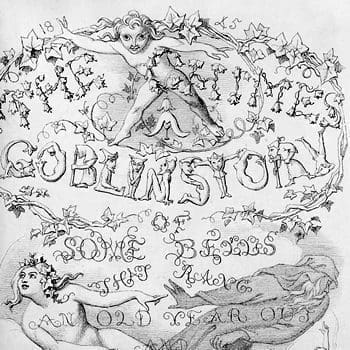 1845
THE CHIMES
A
GOBLIN STORY
OF
SOME BELLS
THAT RANG
AN OLD YEAR OUT
AND